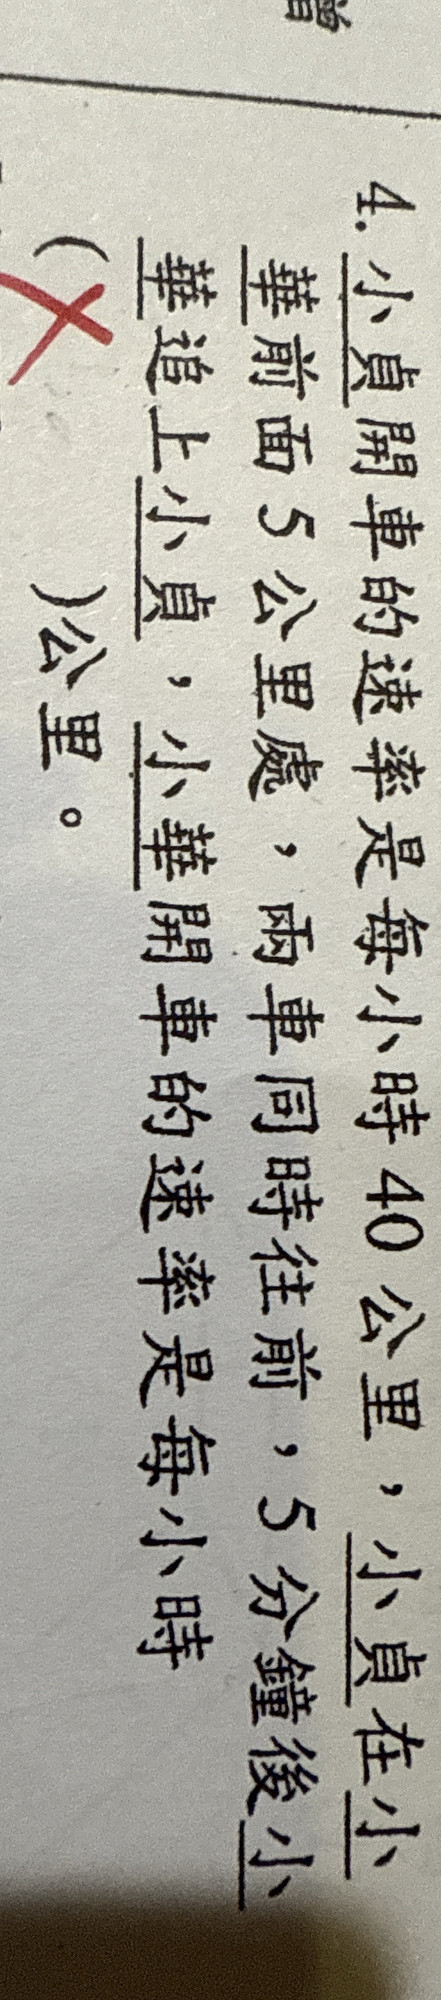 4. 小貞開車的速率是每小時40公里，小貞在小
華前面5公里處，兩車同時往前，5分鐘後小
華追上小貞，小華開車的速率是每小時
(　　)公里。